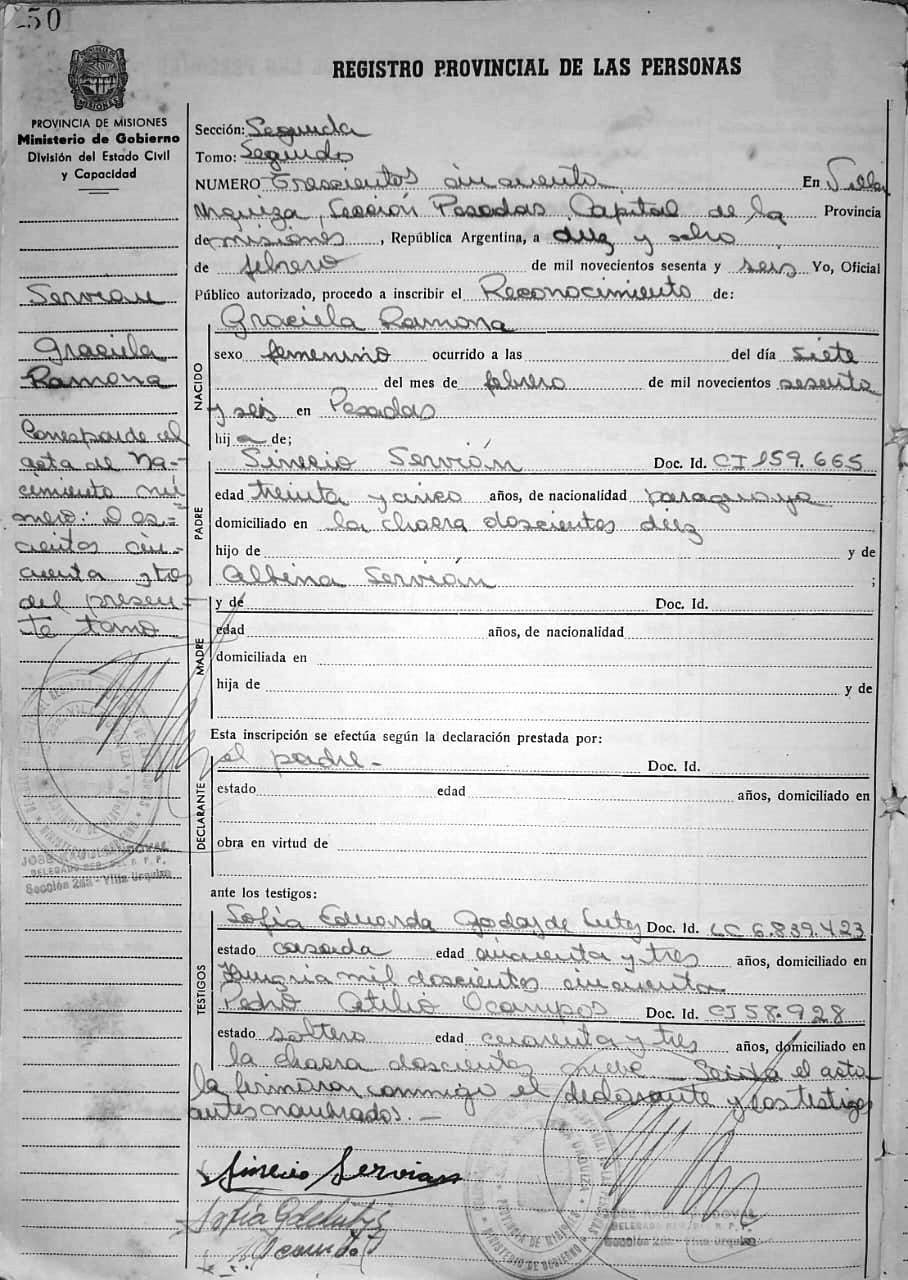 50
PROVINCIA DE MISIONES
Ministerio de Gobierno
División del Estado Civil
y Capacidad
Servian
Graciela
Ramona
Corresponde al
acta de Na-
cimiento nú
mero: Dos-
cientos cin-
cuenta y tres
del presen-
te tomo
REGISTRO PROVINCIAL DE LAS PERSONAS
Sección: Segunda
Tomo: Segundo
NUMERO Trescientos cincuenta En Villa
Urquiza, Sección Posadas, Capital de la Provincia
de misiones, República Argentina, a diez y ocho
de febrero de mil novecientos sesenta y seis Yo, Oficial
Público autorizado, procedo a inscribir el Reconocimiento de:
Graciela Ramona
NACIDO
sexo femenino ocurrido a las del día siete
del mes de febrero de mil novecientos sesenta
y seis en Posadas
hija de;
PADRE
Sinecio Servián Doc. Id. CI 159.665
edad treinta y cinco años, de nacionalidad paraguaya
domiciliado en la chacra doscientos diez
hijo de y de
Albina Servián ;
MADRE
y de Doc. Id.
edad años, de nacionalidad
domiciliada en
hija de y de
Esta inscripción se efectúa según la declaración prestada por:
DECLARANTE
el padre - Doc. Id.
estado edad años, domiciliado en
obra en virtud de
ante los testigos:
TESTIGOS
Sofía Eduarda Godoy de Doc. Id. LC 6.839.423
estado casada edad cincuenta y tres años, domiciliado en
mil doscientos cincuenta
Pedro Atilio Ocampos Doc. Id. CI 58.928
estado soltero edad cuarenta y tres años, domiciliado en
la chacra doscientos nueve Leida el acta
la firmaron conmigo el declarante y los testigos
antes nombrados. -
Sinecio Servian
Sofia
Sección 2da - Villa Urquiza
Sección 2da - Villa Urquiza